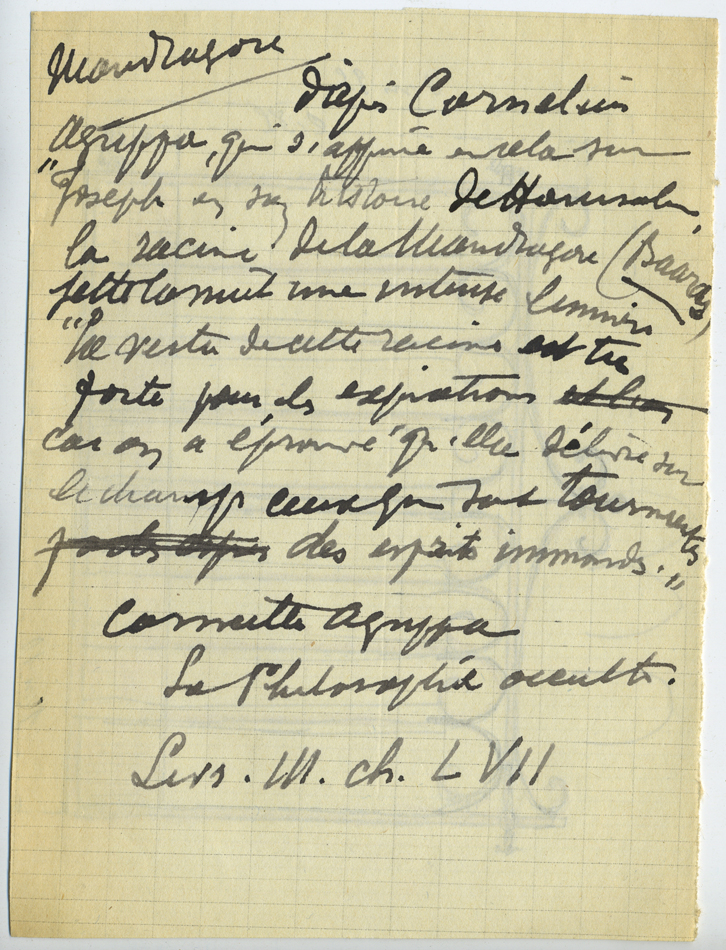 Mandragore
d'après Cornelius
Agrippa, qui s'appuie en cela sur
"Joseph en son histoire de Hierusalem,
la racine de la Mandragore (Baaras)
jette la nuit une intense lumière
"La vertu de cette racine est très
forte pour les expiations et les
car on a éprouvé qu'elle délivre sur
le champ ceux qui sont tourmentés
des esprits immonds."
Corneille Agrippa
La Philosophie occulte.
Livr. III. ch. LVII